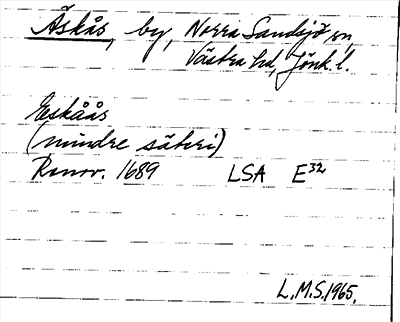 Äskås, by, Norra Sandsjö sn
Västra hd, Jönk. l.
Eskåås
(mindre säteri)
Renov. 1689 LSA E32
L.M.S. 1965.